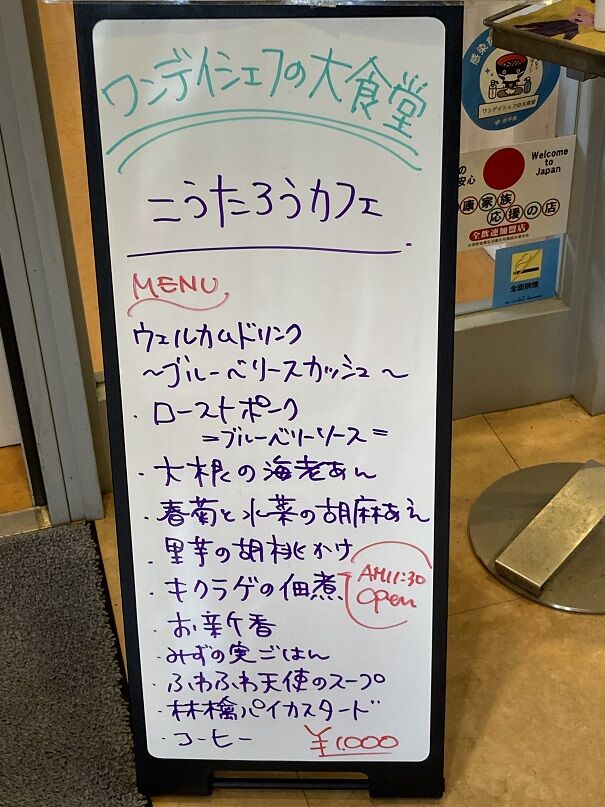 ワンデイシェフの大食堂
こうたろうカフェ
MENU
ウェルカムドリンク
〜ブルーベリースカッシュ〜
・ローストポーク
=ブルーベリーソース=
・大根の海老あん
・春菊と水菜の胡麻あえ
・里芋の胡桃かけ
・キクラゲの佃煮
AM11:30
Open
・お新香
・みずの実ごはん
・ふわふわ天使のスープ
・林檎パイカスタード
・コーヒー
¥1,000
ワンデイシェフの大食堂
Welcome
to
Japan
安心
康家族
応援の店
全飲連加盟店
全面禁煙